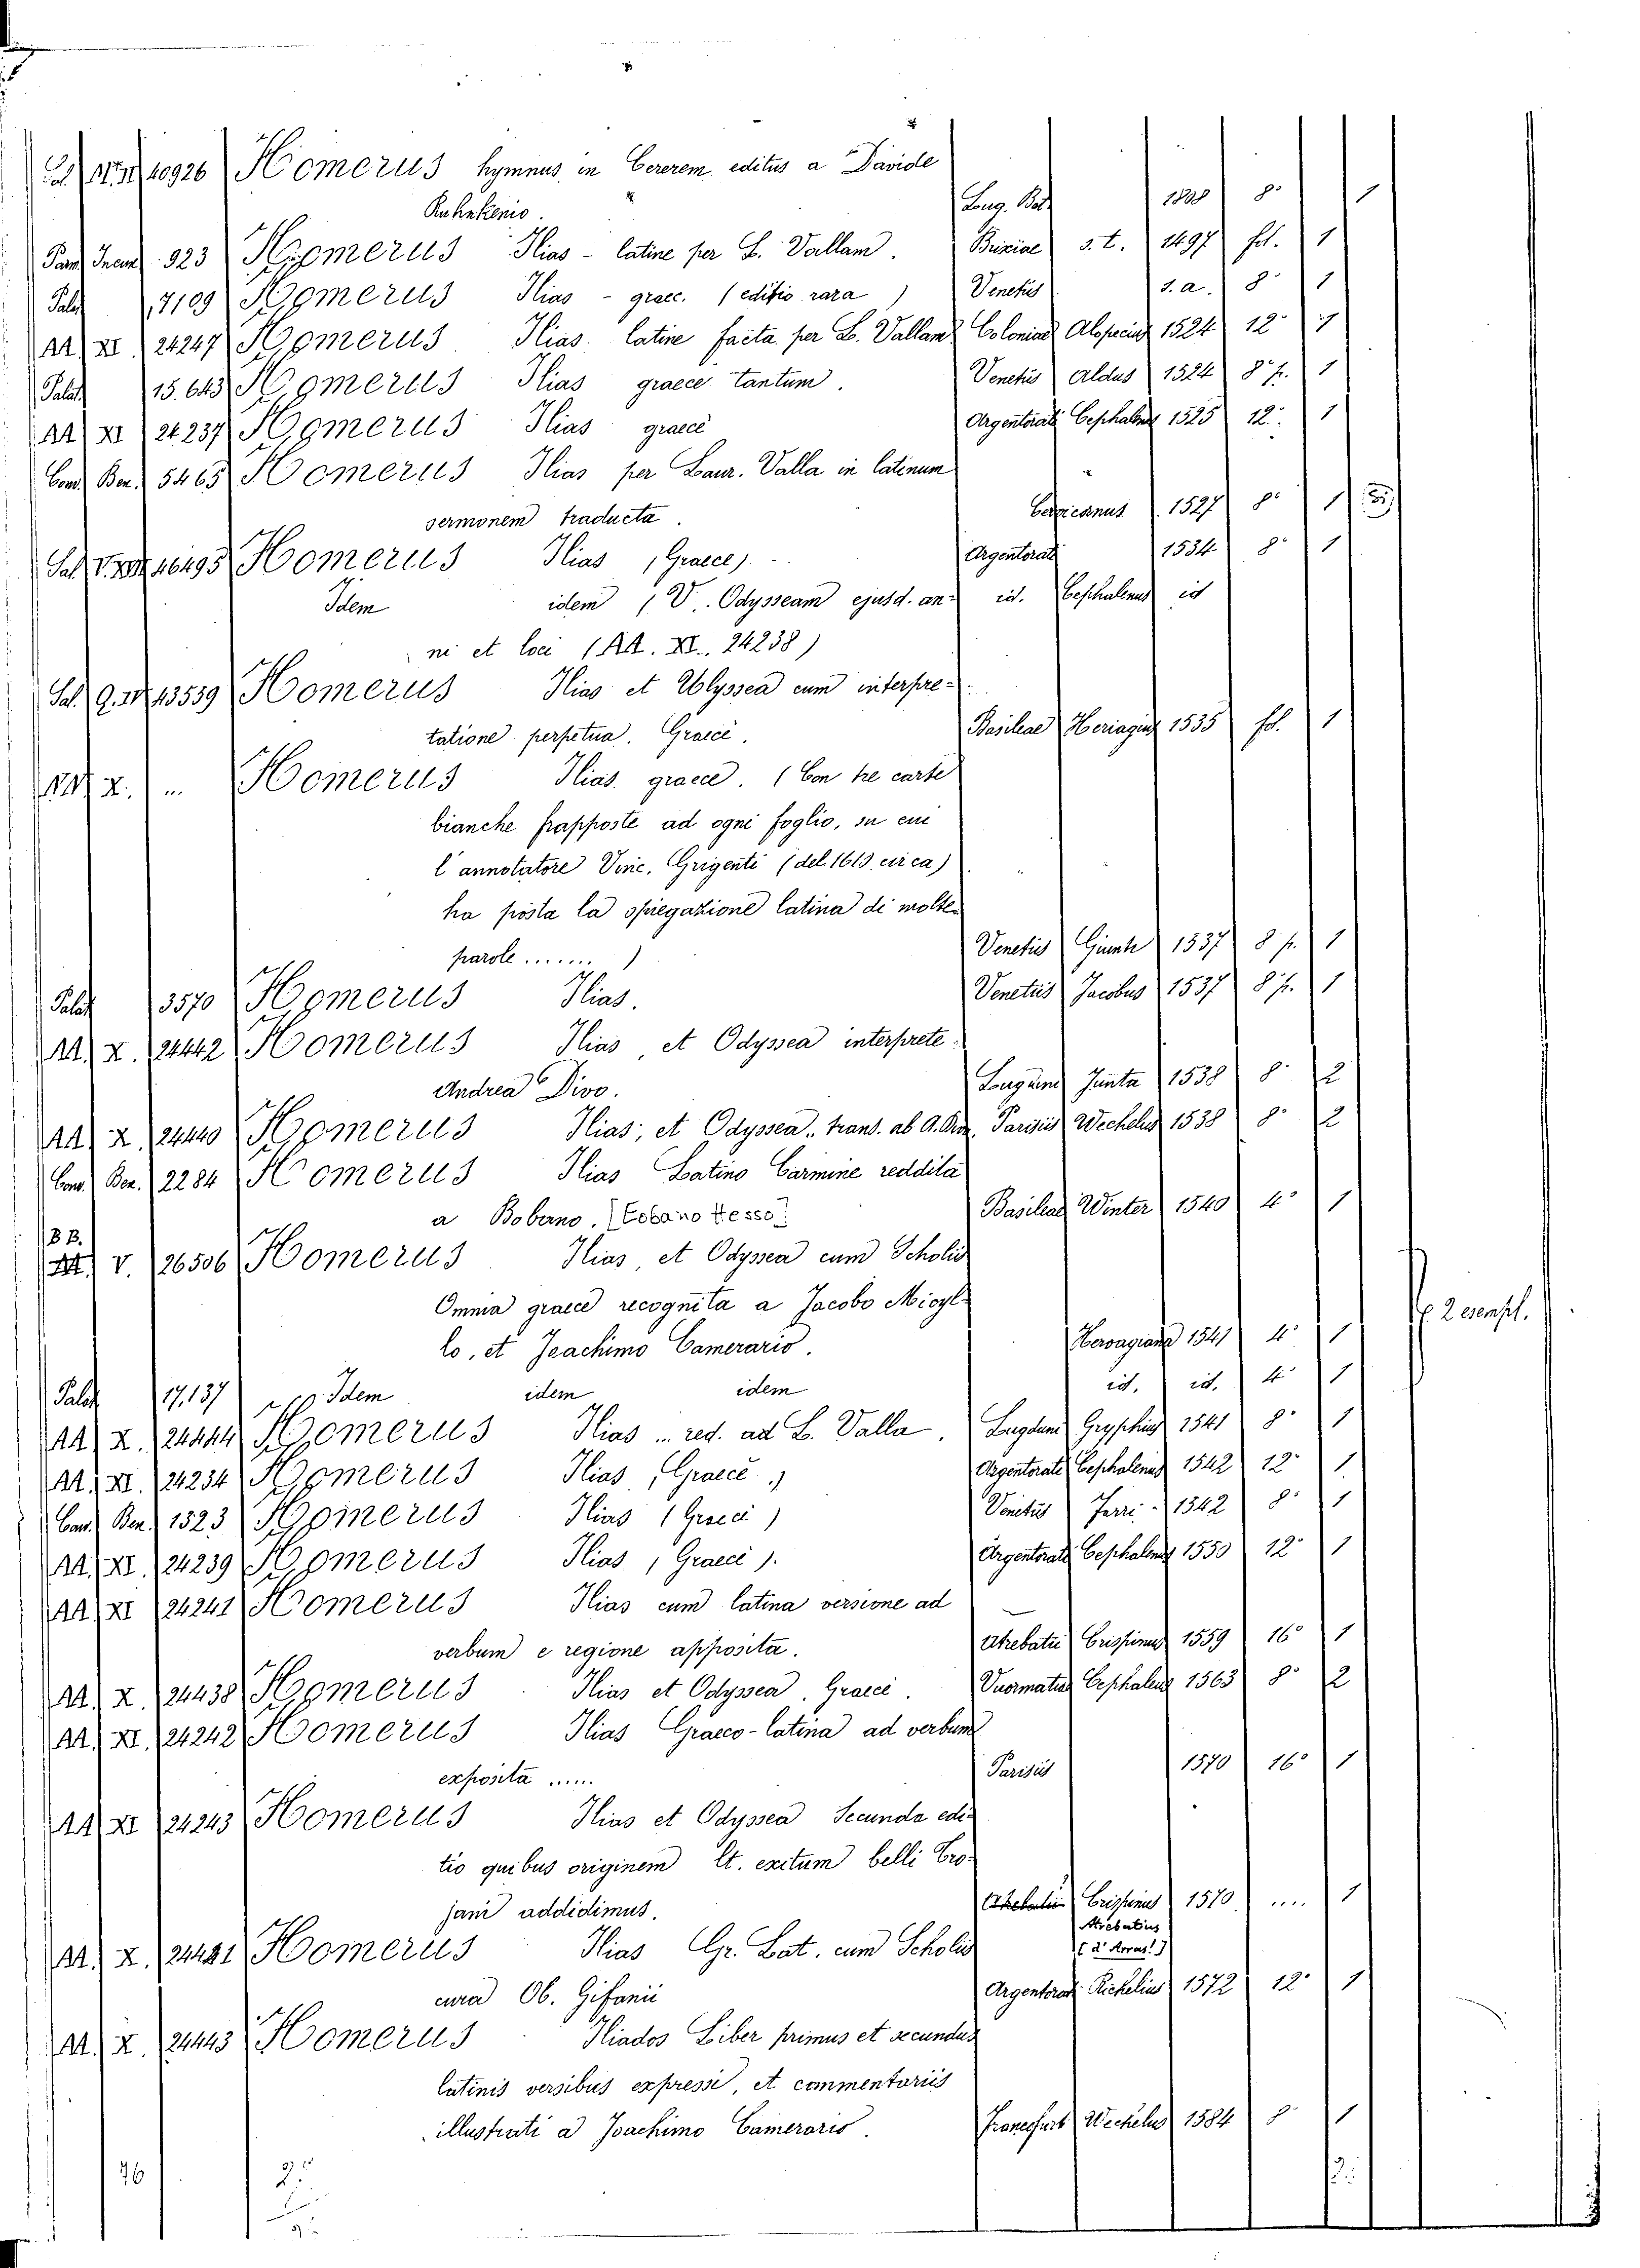 10926 Homerus hymnus in Cererem editus a Davide
Ruhnkenio. Lug. Bat. 1808 8º 1
Incun. 323 Homerus Ilias - latine per L. Vallam. Brixiae s.t. 1497 fol. 1
Palat 7109 Homerus Ilias - graec. (editio rara) Venetiis s.a. 8º 1
AA XI 24247 Homerus Ilias latine facta per L. Vallam Coloniae Alopecius 1524 12º 1
Palat 15.643 Homerus Ilias graece tantum. Venetiis Aldus 1524 8º p. 1
AA XI 24237 Homerus Ilias graece Argentorati Cephaleus 1525 12º 1
Con. Ben. 5465 Homerus Ilias per Laur. Valla in latinum
sermonem traducta. 1527 8º 1
16495 Homerus Ilias (Graece) Argentorati 1534 8º 1
Idem idem (V. Odysseam ejusd. an- id. Cephaleus id
ni et loci (AA. XI. 24238)
13539 Homerus Ilias et Ulyssea cum interpre-
tatione perpetua. Graecè. Basileae Hervagius 1535 fol. 1
X. ... Homerus Ilias graece. (Con tre carte
bianche frapposte ad ogni foglio, su cui
l'annotatore Vinc. Grigenti (del 1613 circa)
ha posta la spiegazione latina di molte
parole .......) Venetiis Giunte 1537 8 p. 1
Palat 3570 Homerus Ilias. Venetiis Jacobus 1537 8º p. 1
AA. X. 24442 Homerus Ilias, et Odyssea interprete
Andrea Divo. Lugduni Junta 1538 8º 2
AA X. 24440 Homerus Ilias, et Odyssea, trans. ab A. Div. Parisiis Wechelus 1538 8º 2
Con. Ben. 2284 Homerus Ilias Latino Carmine reddita
a Bobano. [Eobano Hesso] Basileae Winter 1540 4º 1
BB.
V. 26506 Homerus Ilias, et Odyssea cum Scholiis
Omnia graece recognita a Jacobo Micyl-
lo, et Joachimo Camerario. Hervagiana 1541 4º 1 2 esempl.
Palat 17,137 Idem idem idem id. id. 4º 1
AA X. 24444 Homerus Ilias ... red. ad L. Valla. Lugduni Gryphius 1541 8º 1
AA. XI. 24234 Homerus Ilias, (Graecè.) Argentorati Cephaleus 1542 12º 1
Con. Ben. 1323 Homerus Ilias (Graecè) Venetiis Farri 1542 8º 1
AA. XI. 24239 Homerus Ilias. (Graecè). Argentorati Cephaleus 1550 12º 1
AA XI 24241 Homerus Ilias cum latina versione ad
verbum e regione apposita. Atrebatii Crispinus 1559 16º 1
AA. X. 24438 Homerus Ilias et Odyssea. Graecè. Vuormatiae Cephaleus 1563 8º 2
AA. XI. 24242 Homerus Ilias Graeco-latina ad verbum
exposita ...... Parisiis 1570 16º 1
AA XI 24243 Homerus Ilias et Odyssea Secunda edi-
tio quibus originem et. exitum belli Tro-
jani addidimus. Atrebatii Crispinus 1570 .... 1
Atrebatius
[d'Arras!]
AA. X. 24441 Homerus Ilias Gr. Lat. cum Scholiis
cura Ob. Gifanii Argentorati Richelius 1572 12º 1
AA. X. 24443 Homerus Iliados Liber primus et secundus
latinis versibus expressi, et commentariis
illustrati a Joachimo Camerario. Francfurt Wechelus 1584 8º 1